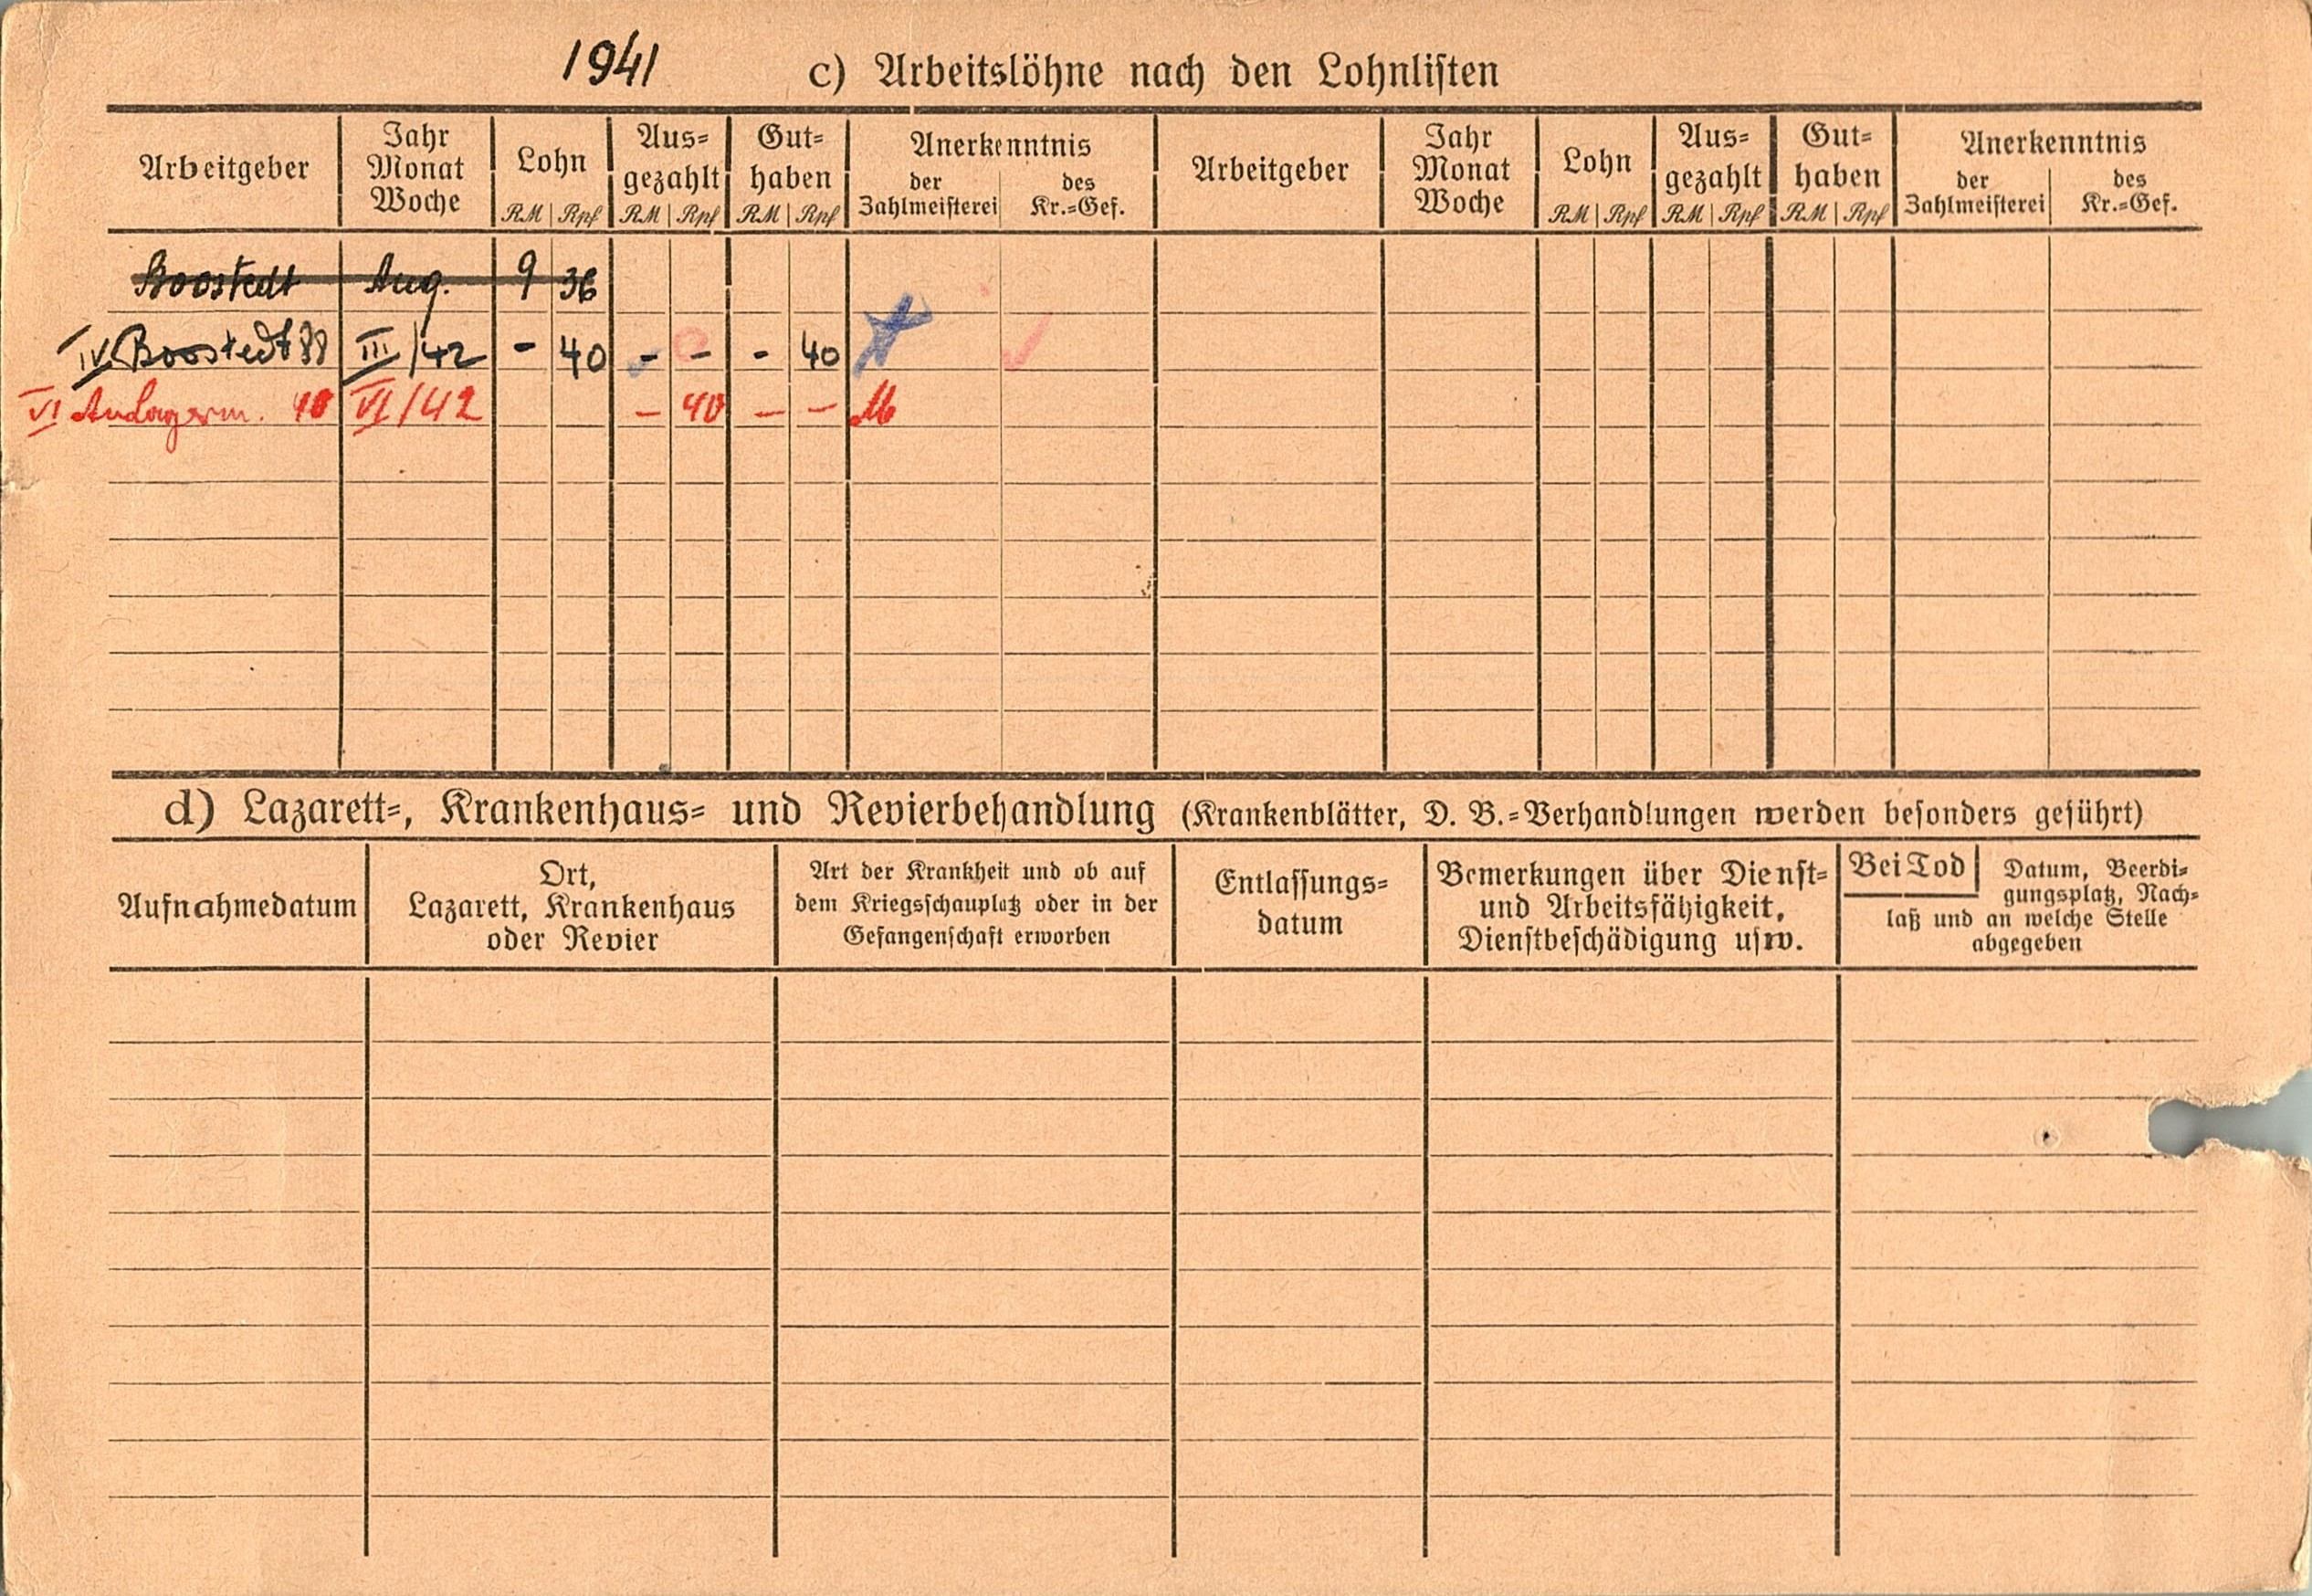 1941 c) Arbeitslöhne nach den Lohnlisten
Arbeitgeber
Jahr
Monat
Woche
Lohn
RM Rpf
Aus-
gezahlt
RM Rpf
Gut-
haben
RM Rpf
Anerkenntnis
der
Zahlmeisterei
des
Kr.-Gef.
Arbeitgeber
Jahr
Monat
Woche
Lohn
RM Rpf
Aus-
gezahlt
RM Rpf
Gut-
haben
RM Rpf
Anerkenntnis
der
Zahlmeisterei
des
Kr.-Gef.
Boostedt Aug. 9 36
IV Boostedt 88 III/42 - 40 - - - 40
VI VI/42 - 40 - -
d) Lazarett-, Krankenhaus- und Revierbehandlung (Krankenblätter, D. B.-Verhandlungen werden besonders geführt)
Aufnahmedatum
Ort,
Lazarett, Krankenhaus
oder Revier
Art der Krankheit und ob auf
dem Kriegsschauplatz oder in der
Gefangenschaft erworben
Entlassungs-
datum
Bemerkungen über Dienst-
und Arbeitsfähigkeit,
Dienstbeschädigung usw.
Bei Tod Datum, Beerdi-
gungsplatz, Nach-
laß und an welche Stelle
abgegeben